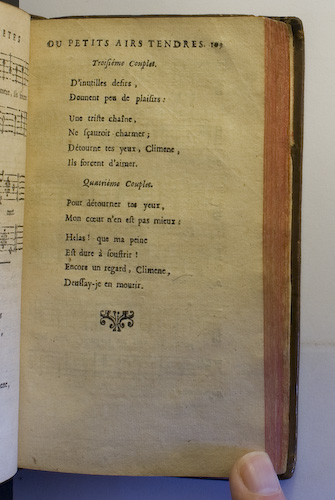 OU PETITS AIRS TENDRES. 109
Troisiéme Couplet.
D'inutilles desirs,
Donnent peu de plaisirs:
Une triste chaîne,
Ne sçauroit charmer;
Détourne tes yeux, Climene,
Ils forcent d'aimer.
Quatriéme Couplet.
Pour détourner tes yeux,
Mon cœur n'en est pas mieux:
Helas! que ma peine
Est dure à souffrir!
Encore un regard, Climene,
Deussay-je en mourir.